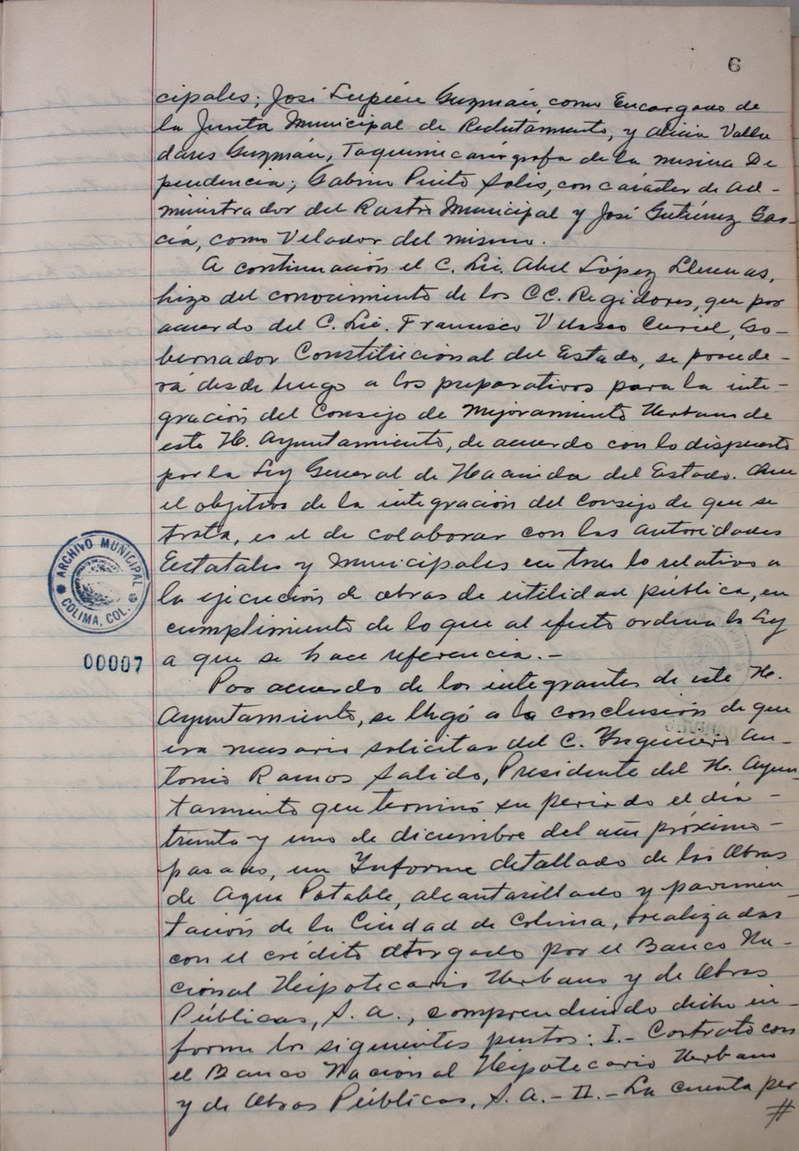 6
cipales; José Lupién Guzmán, como Encargado de
la Junta Municipal de Reclutamiento, y Alicia Valla
dares Guzmán, Taquimecanógrafa de la misma De
pendencia; Gabino Pinto Solis, con carácter de Ad-
ministrador del Rastro Municipal y José Gutiérrez Gar-
cía, como Velador del mismo.
A continuación el C. Lic. Abel López Llerenas,
hizo del conocimiento de los CC. Regidores, que por
acuerdo del C. Lic. Francisco Velasco Curiel, Go-
bernador Constitucional del Estado, se procede-
rá desde luego a los preparativos para la inte-
gración del Consejo de Mejoramiento Urbano de
este H. Ayuntamiento, de acuerdo con lo dispuesto
por la Ley General de Hacienda del Estado. Que
el objetivo de la integración del Consejo de que se
trata, es el de colaborar con las autoridades
Estatales y Municipales en todo lo relativo a
la ejecución de obras de utilidad pública, en
cumplimiento de lo que al efecto ordena la Ley
a que se hace referencia.-
Por acuerdo de los integrantes de este H.
Ayuntamiento, se llegó a la conclusión de que
era necesario solicitar del C. Ingeniero An-
tonio Ramos Salido, Presidente del H. Ayun-
tamiento que terminó su período el día-
treinta y uno de diciembre del año próximo-
pasado, un Informe detallado de las Obras
de Agua Potable, alcantarillado y pavimen-
tación de la Ciudad de Colima, realizadas
con el crédito otorgado por el Banco Na-
cional Hipotecario Urbano y de Obras
Públicas, S. A., comprendiendo dicho in-
forme los siguientes puntos: I.- Contrato con
el Banco Nacional Hipotecario Urbano
y de Obras Públicas, S. A.- II.- La cuenta per
#
ARCHIVO MUNICIPAL
COLIMA, COL.
00007